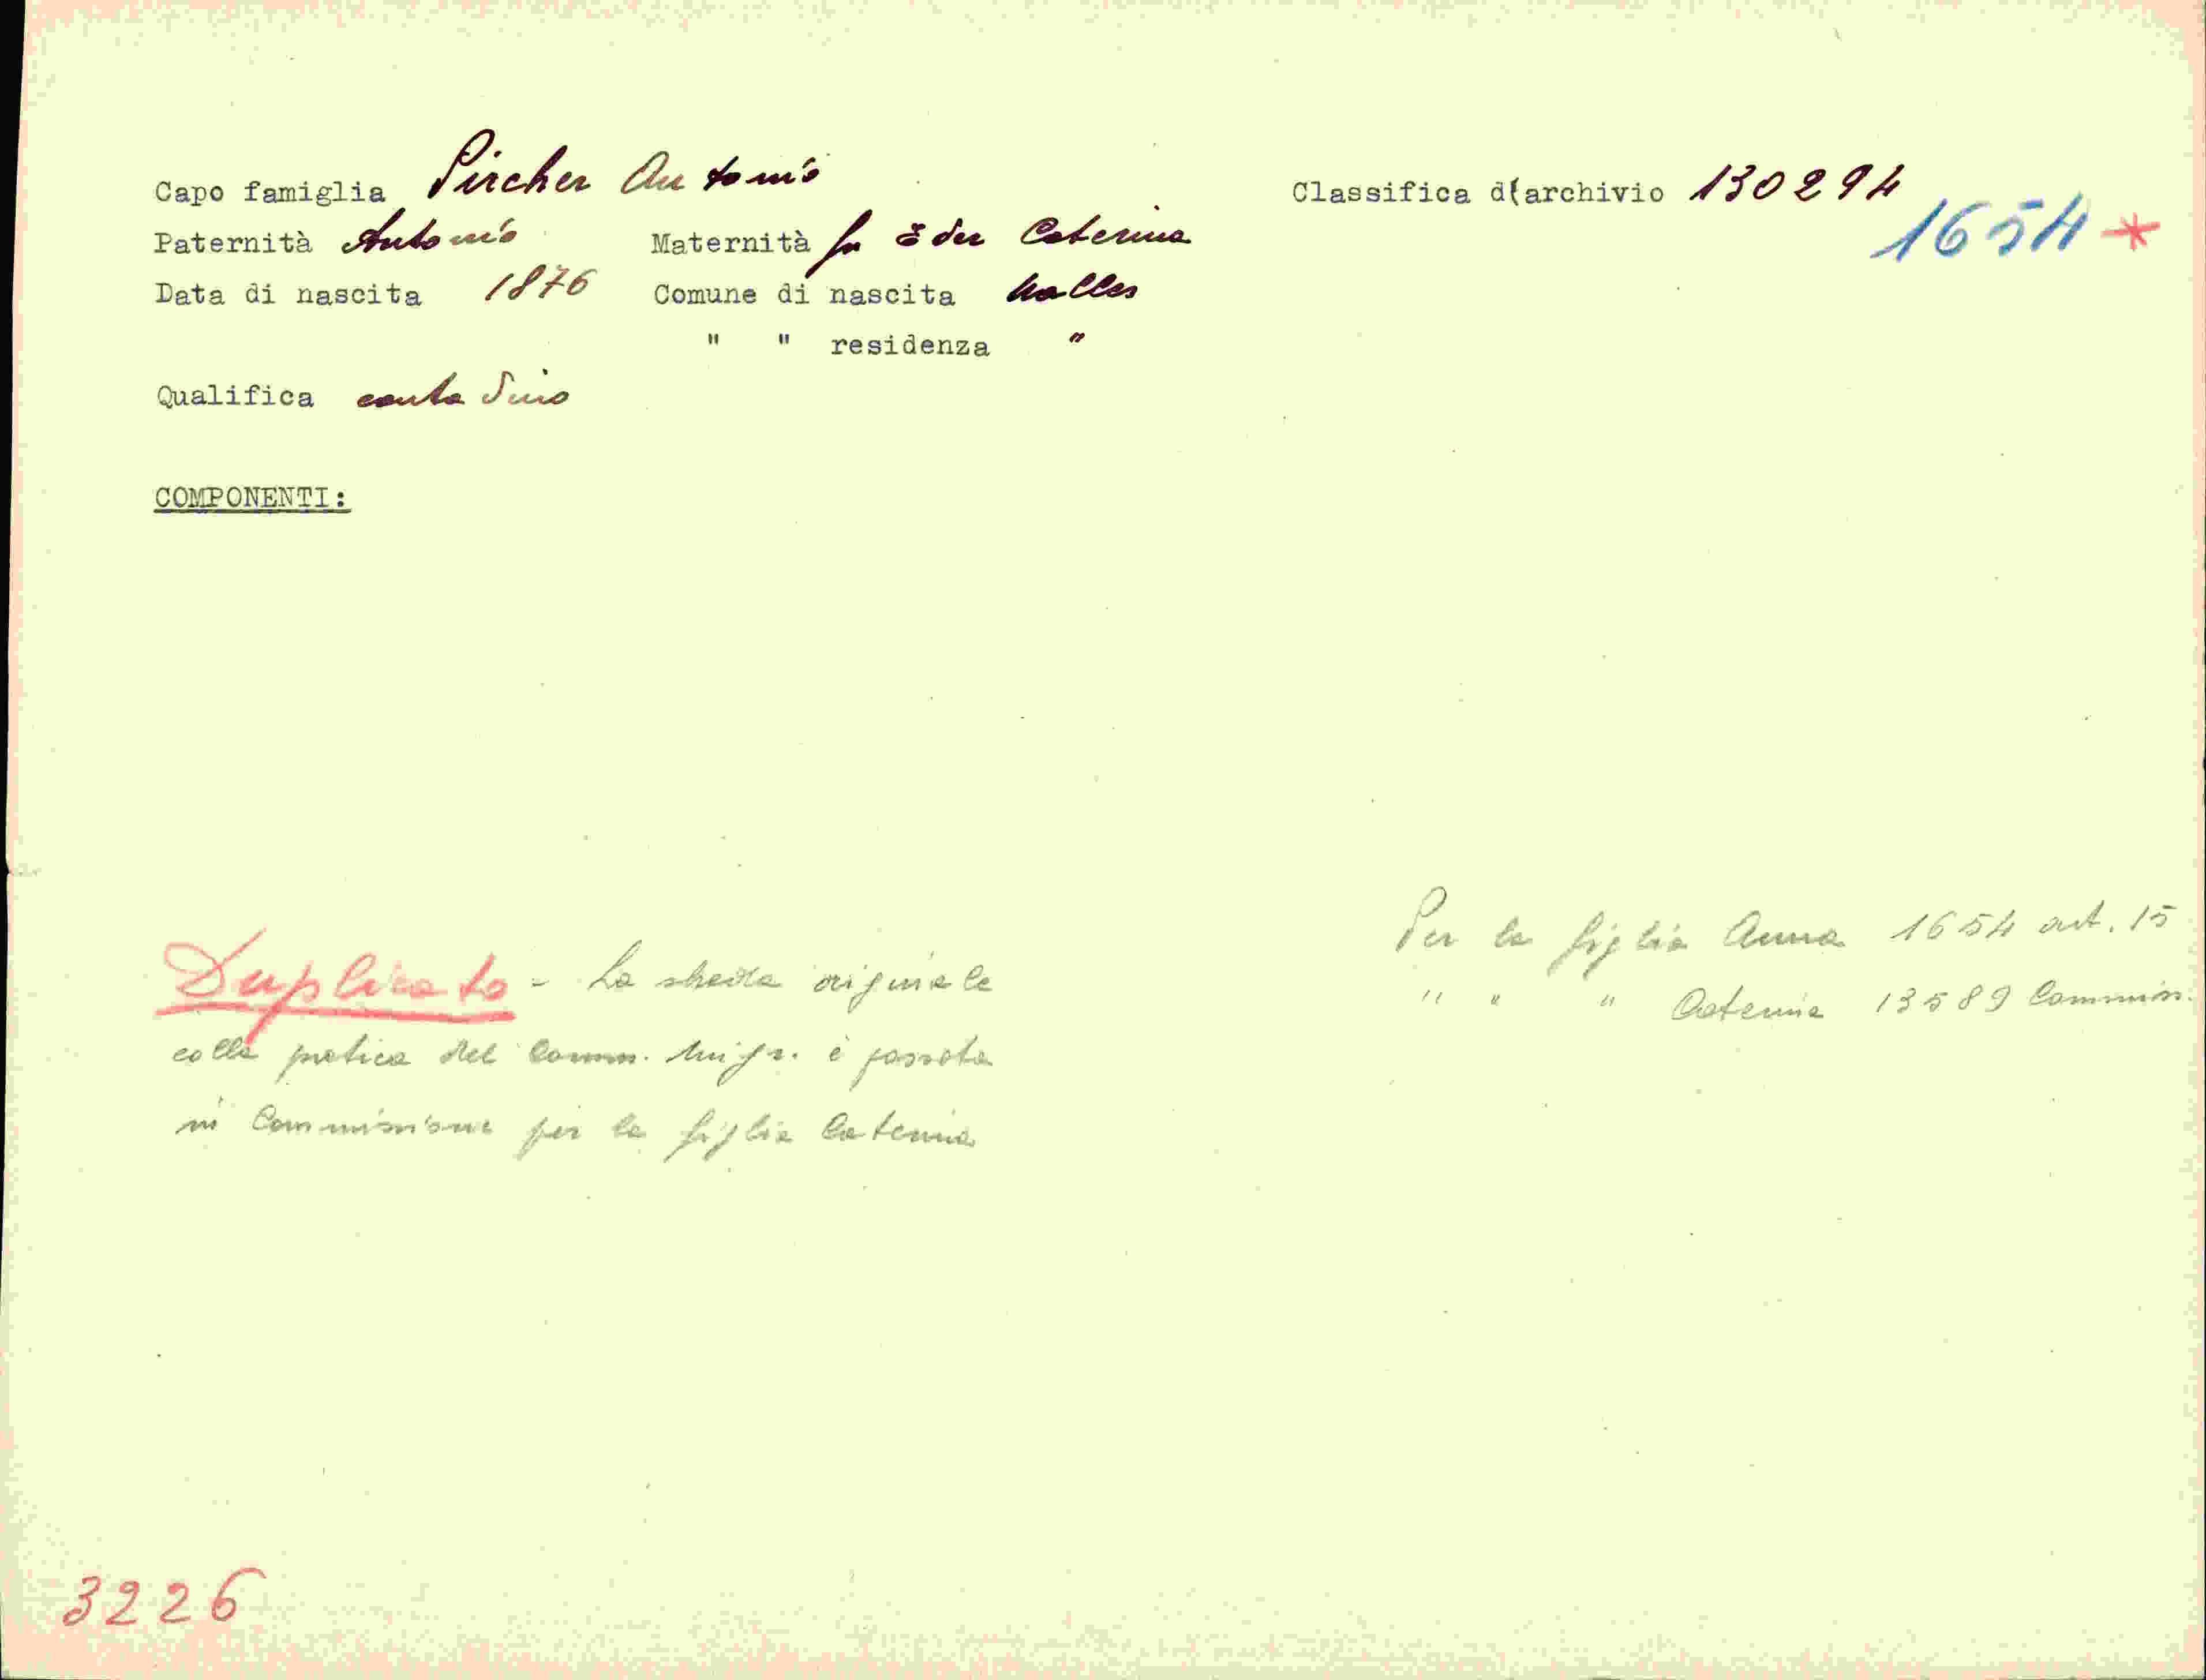 Capo famiglia Pircher Antonio Classifica d(archivio 130294
1654 *
Paternità Antonio Maternità fu Eder Caterina
Data di nascita 1876 Comune di nascita Malles
" " residenza "
Qualifica contadino
COMPONENTI:
Per la figlia Anna 1654 art. 15
" " " Caterina 13589 Commiss.
Duplicato - La scheda originale
colla pratica del Comm. Migr. è passata
in Commissione per la figlia Caterina
3226